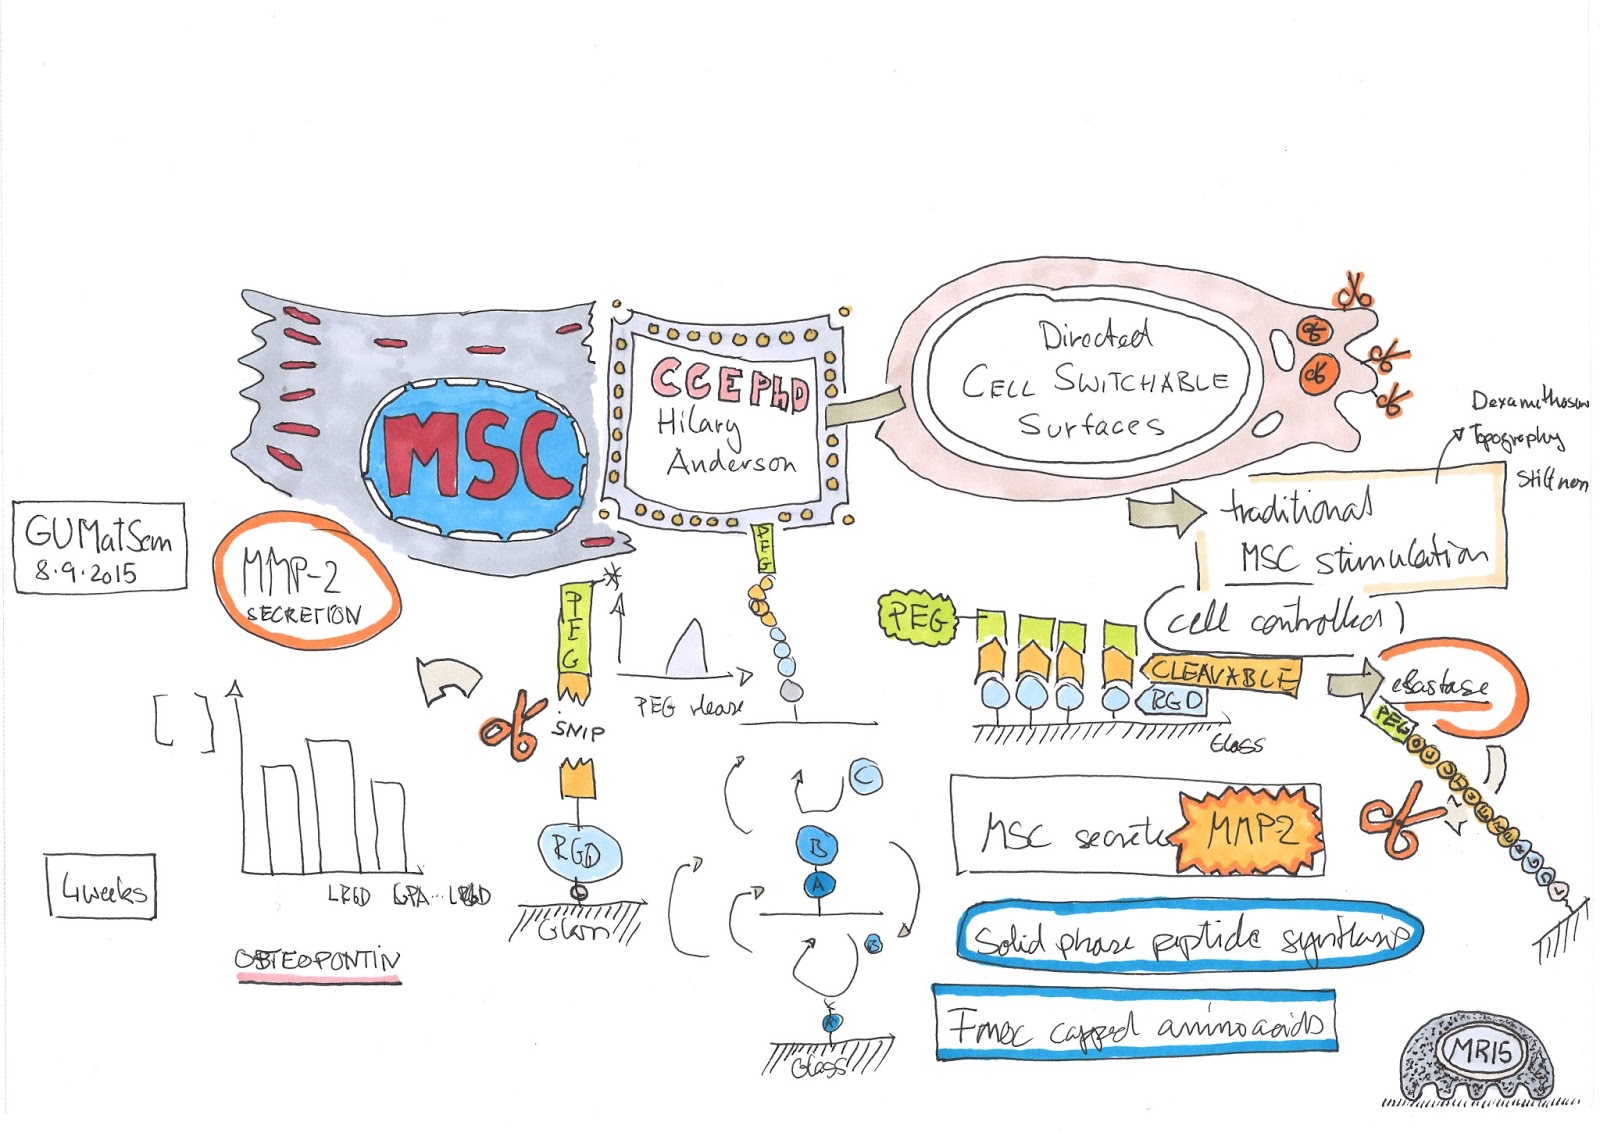 MSC
CCE PhD
Hilary
Anderson
Directed
CELL SWITCHABLE
Surfaces
Topography
traditional
MSC stimulation
(cell controlled)
GUMatSem
8.9.2015
MMP-2
SECRETION
PEG
PEG release
SNIP
RGD
Glass
PEG
PEG
CLEAVABLE
RGD
Glass
elastase
PEG
[ ]
LRGD
4 weeks
OSTEOPONTIN
C
B
A
B
A
Glass
MSC secrete MMP-2
Solid phase peptide synthesis
Fmoc capped aminoacids
MR15